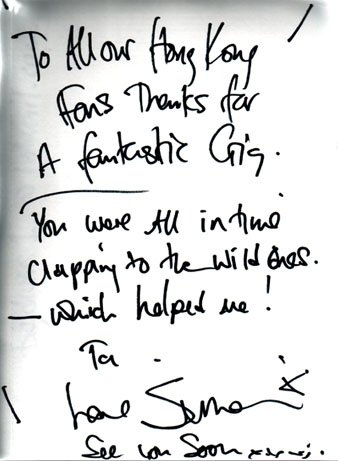 To All our Hong Kong
Fans Thanks for
A fantastic Gig.
You were All in time
Clapping to the Wild Ones.
— which helped me!
Ta.
Love Simon x
See you Soon